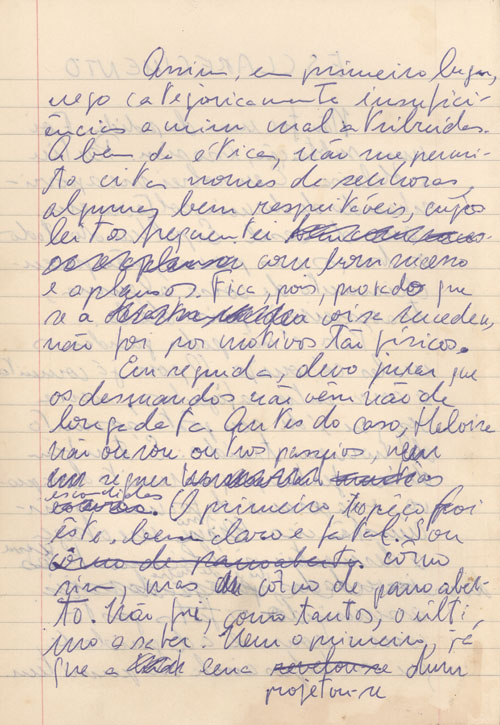 Assim, em primeiro lugar,
nego categoricamente insufici-
ências a mim mal atribuidas.
A bem da ética, não me permi-
to citar nomes de senhoras,
algumas bem respitáveis, cujos
leitos frequentei
com bom sucesso
e aplausos. Fica, pois, provado que
se a coisa sucedeu,
não foi por motivos tão físicos.
Em seguida, devo jurar que
os desmandos não vêm não de
longa data. Antes do caso, Heloise
não ousou outros passeios, nem
em sequer
escondidos
O primeiro tropêço foi
êste, bem claro e fatal. Sou
côrno de pano aberto. côrno
sim, mas côrno de pano aber-
to. Não fui, como tantos, o últi-
mo a saber. Nem o primeiro, já
que a cena revelou-se dum
projetou-se